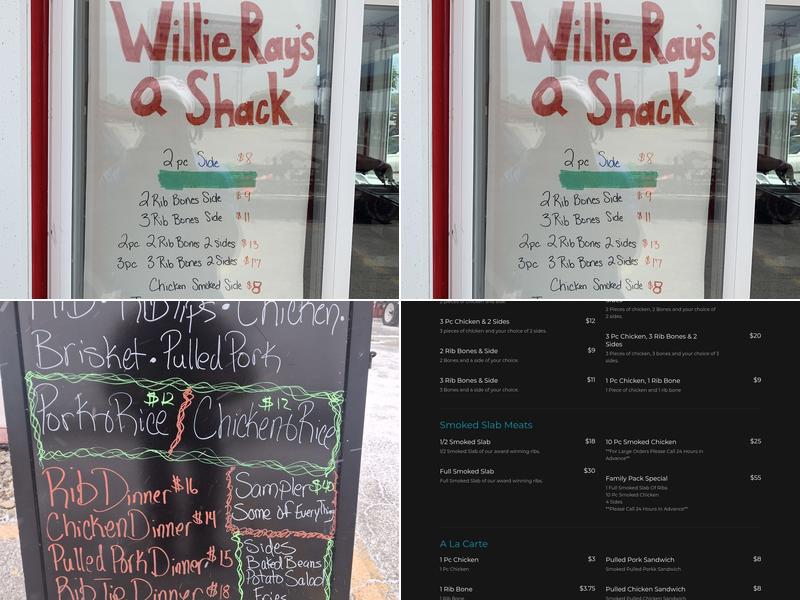 Willie Ray's
Q Shack
2 pc Side $8
2 Rib Bones Side $9
3 Rib Bones Side $11
2pc 2 Rib Bones 2 sides $13
3pc 3 Rib Bones 2 Sides $17
Chicken Smoked Side $8
Willie Ray's
Q Shack
2 pc Side $8
2 Rib Bones Side $9
3 Rib Bones Side $11
2pc 2 Rib Bones 2 sides $13
3pc 3 Rib Bones 2 Sides $17
Chicken Smoked Side $8
Rib Tips • Chicken •
Brisket • Pulled Pork
Pork & Rice $12
Chicken & Rice $12
Rib Dinner $16
Chicken Dinner $14
Pulled Pork Dinner $15
Rib Tip Dinner $18
Sampler
Some of Everything
Sides
Baked Beans
Potato Salad
Fries
2 pieces of chicken and side.
3 Pc Chicken & 2 Sides $12
3 pieces of chicken and your choice of 2 sides.
2 Rib Bones & Side $9
2 Bones and a side of your choice.
3 Rib Bones & Side $11
3 Bones and a side of your choice.
Sides
2 Pieces of chicken, 2 Bones and your choice of
2 sides.
3 Pc Chicken, 3 Rib Bones & 2 $20
Sides
3 Pieces of chicken, 3 bones and your choice of 3
sides.
1 Pc Chicken, 1 Rib Bone $9
1 Piece of chicken and 1 rib bone
Smoked Slab Meats
1/2 Smoked Slab $18
1/2 Smoked Slab of our award winning ribs.
Full Smoked Slab $30
Full Smoked Slab of our award winning ribs.
10 Pc Smoked Chicken $25
**For Large Orders Please Call 24 Hours in
Advance**
Family Pack Special $55
1 Full Smoked Slab Of Ribs
10 Pc Smoked Chicken
4 Sides
**Please Call 24 Hours in Advance**
A La Carte
1 Pc Chicken $3
1 Pc Chicken
1 Rib Bone $3.75
1 Rib Bone
Pulled Pork Sandwich $8
Smoked Pulled Porkk Sandwich
Pulled Chicken Sandwich $8
Smoked Pulled Chicken Sandwich